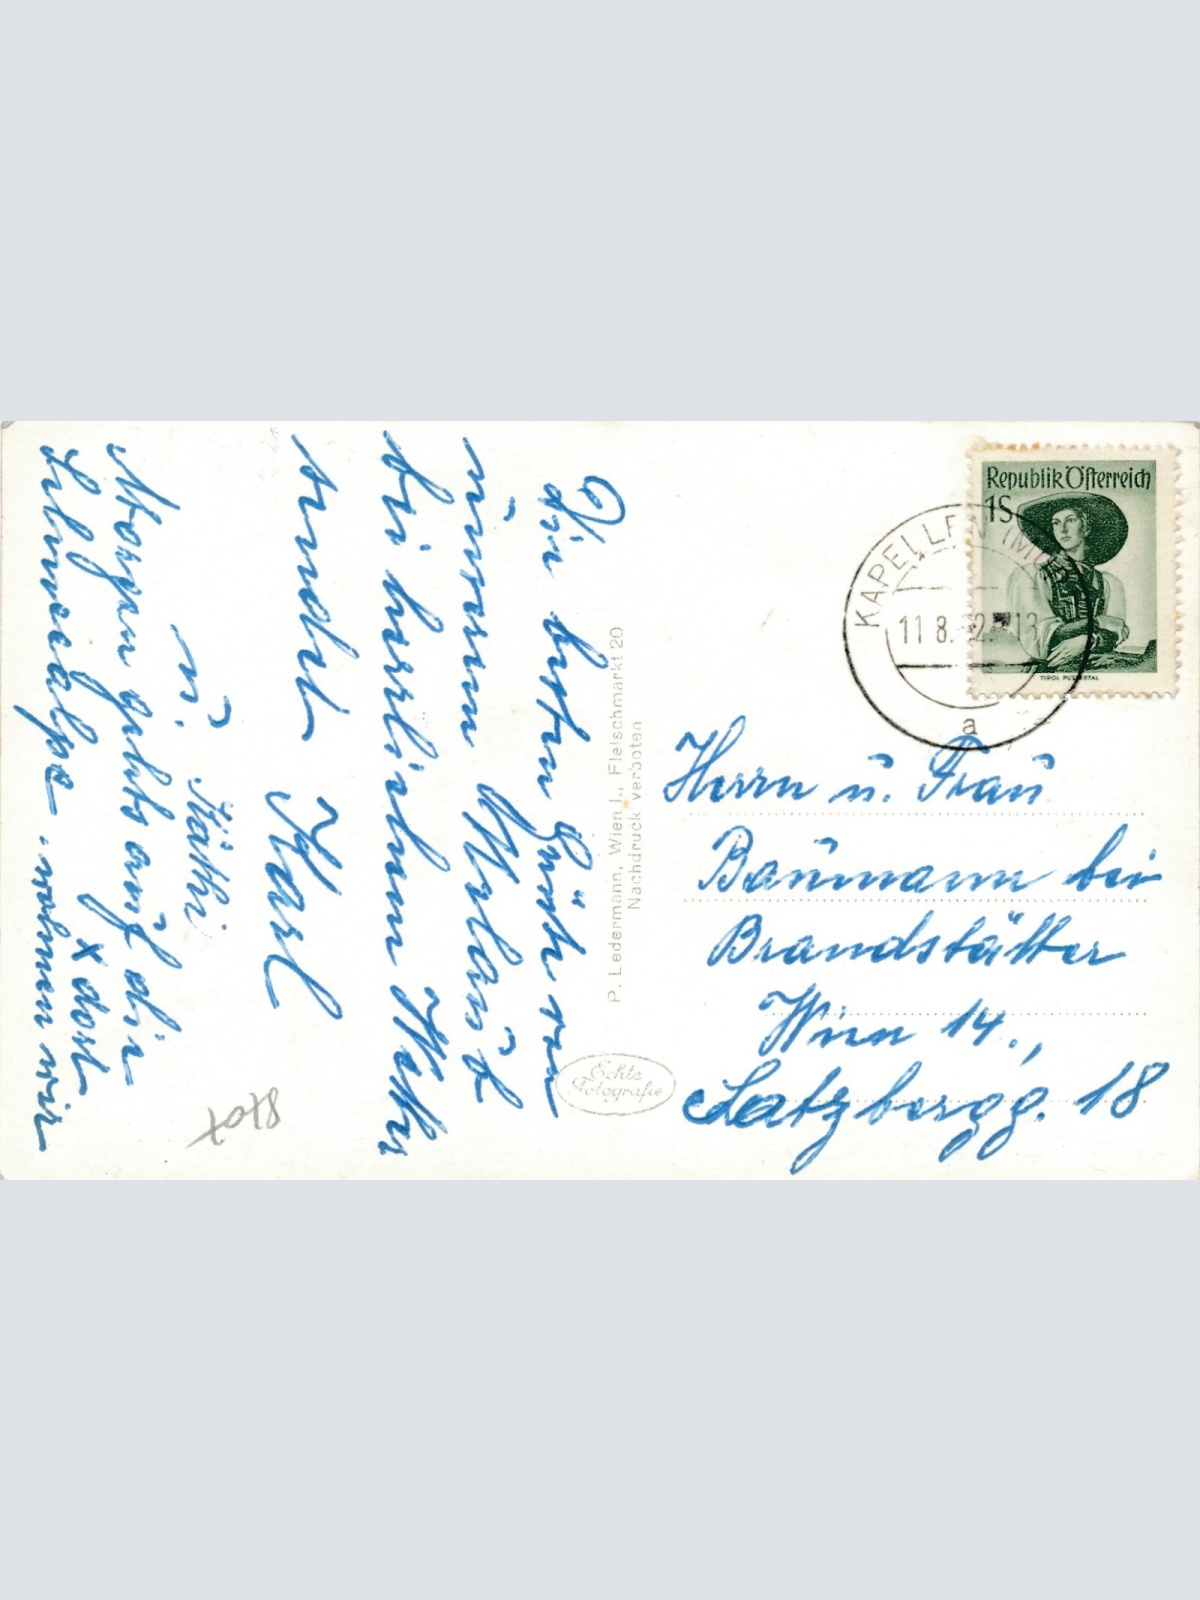 Die besten Grüße von
unserem Urlaub
bei herrlichem Wetter
sendet Karl
u. Käthi
Morgen gehts auf die
x dort
Schneealpe wohnen wir
P. Ledermann, Wien I., Fleischmarkt 20
Nachdruck verboten
Echte
Fotografie
Republik Österreich
1S
TIROL PUSTERTAL
KAPELLEN
11.8.52
a
Herrn u. Frau
Baumann bei
Brandstätter
Wien 14.,
Satzbergg. 18